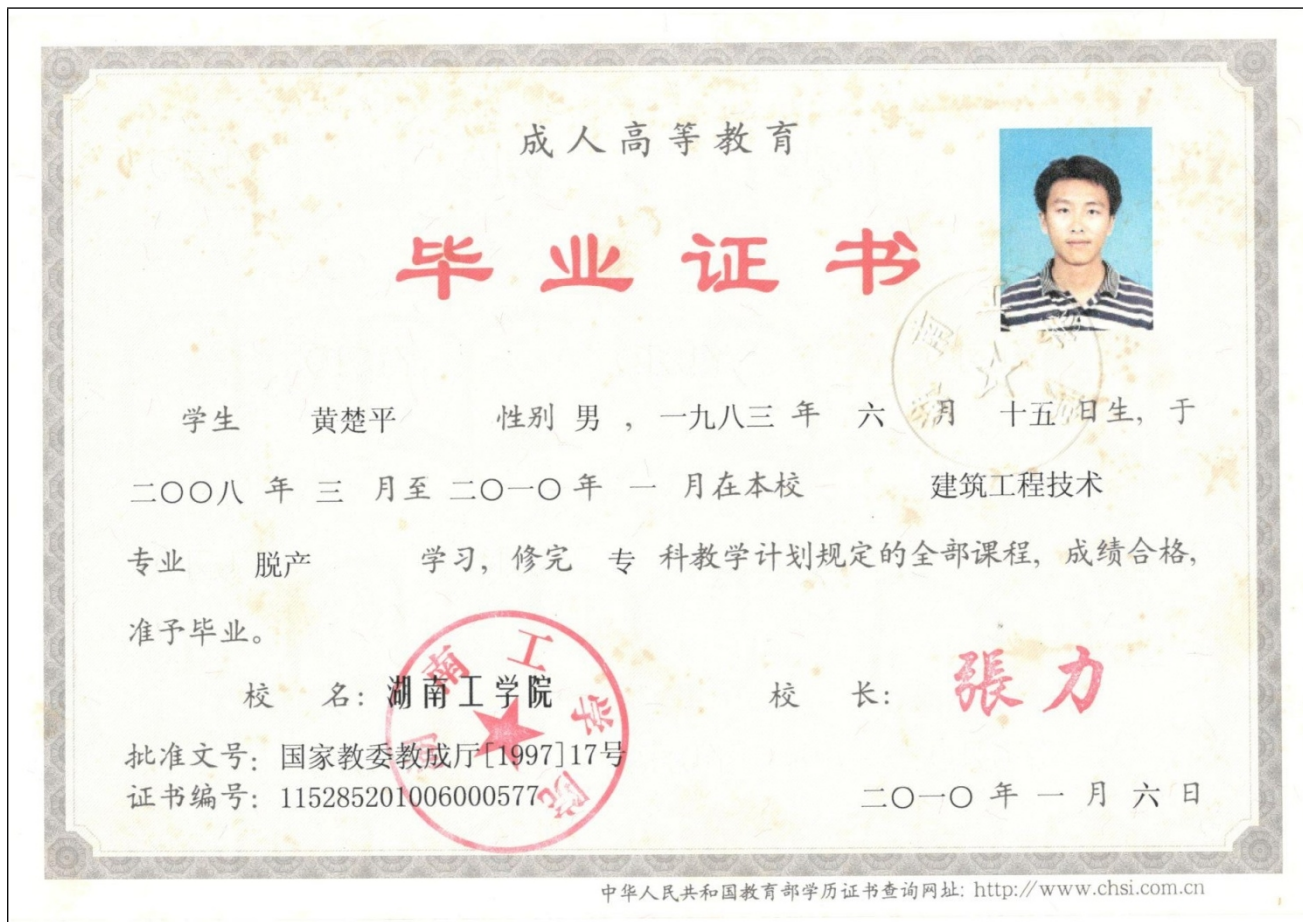 成人高等教育
毕业证书
学生 黄楚平 性别 男 ， 一九八三 年 六 月 十五 日生，于
二〇〇八 年 三 月至 二〇一〇 年 一 月在本校 建筑工程技术
专业 脱产 学习，修完 专 科教学计划规定的全部课程，成绩合格，
准予毕业。
校 名：湖南工学院 校 长：張力
湖南工学院
批准文号：国家教委教成厅[1997]17号
证书编号：115285201006000577
二〇一〇 年 一 月 六 日
中华人民共和国教育部学历证书查询网址：http://www.chsi.com.cn